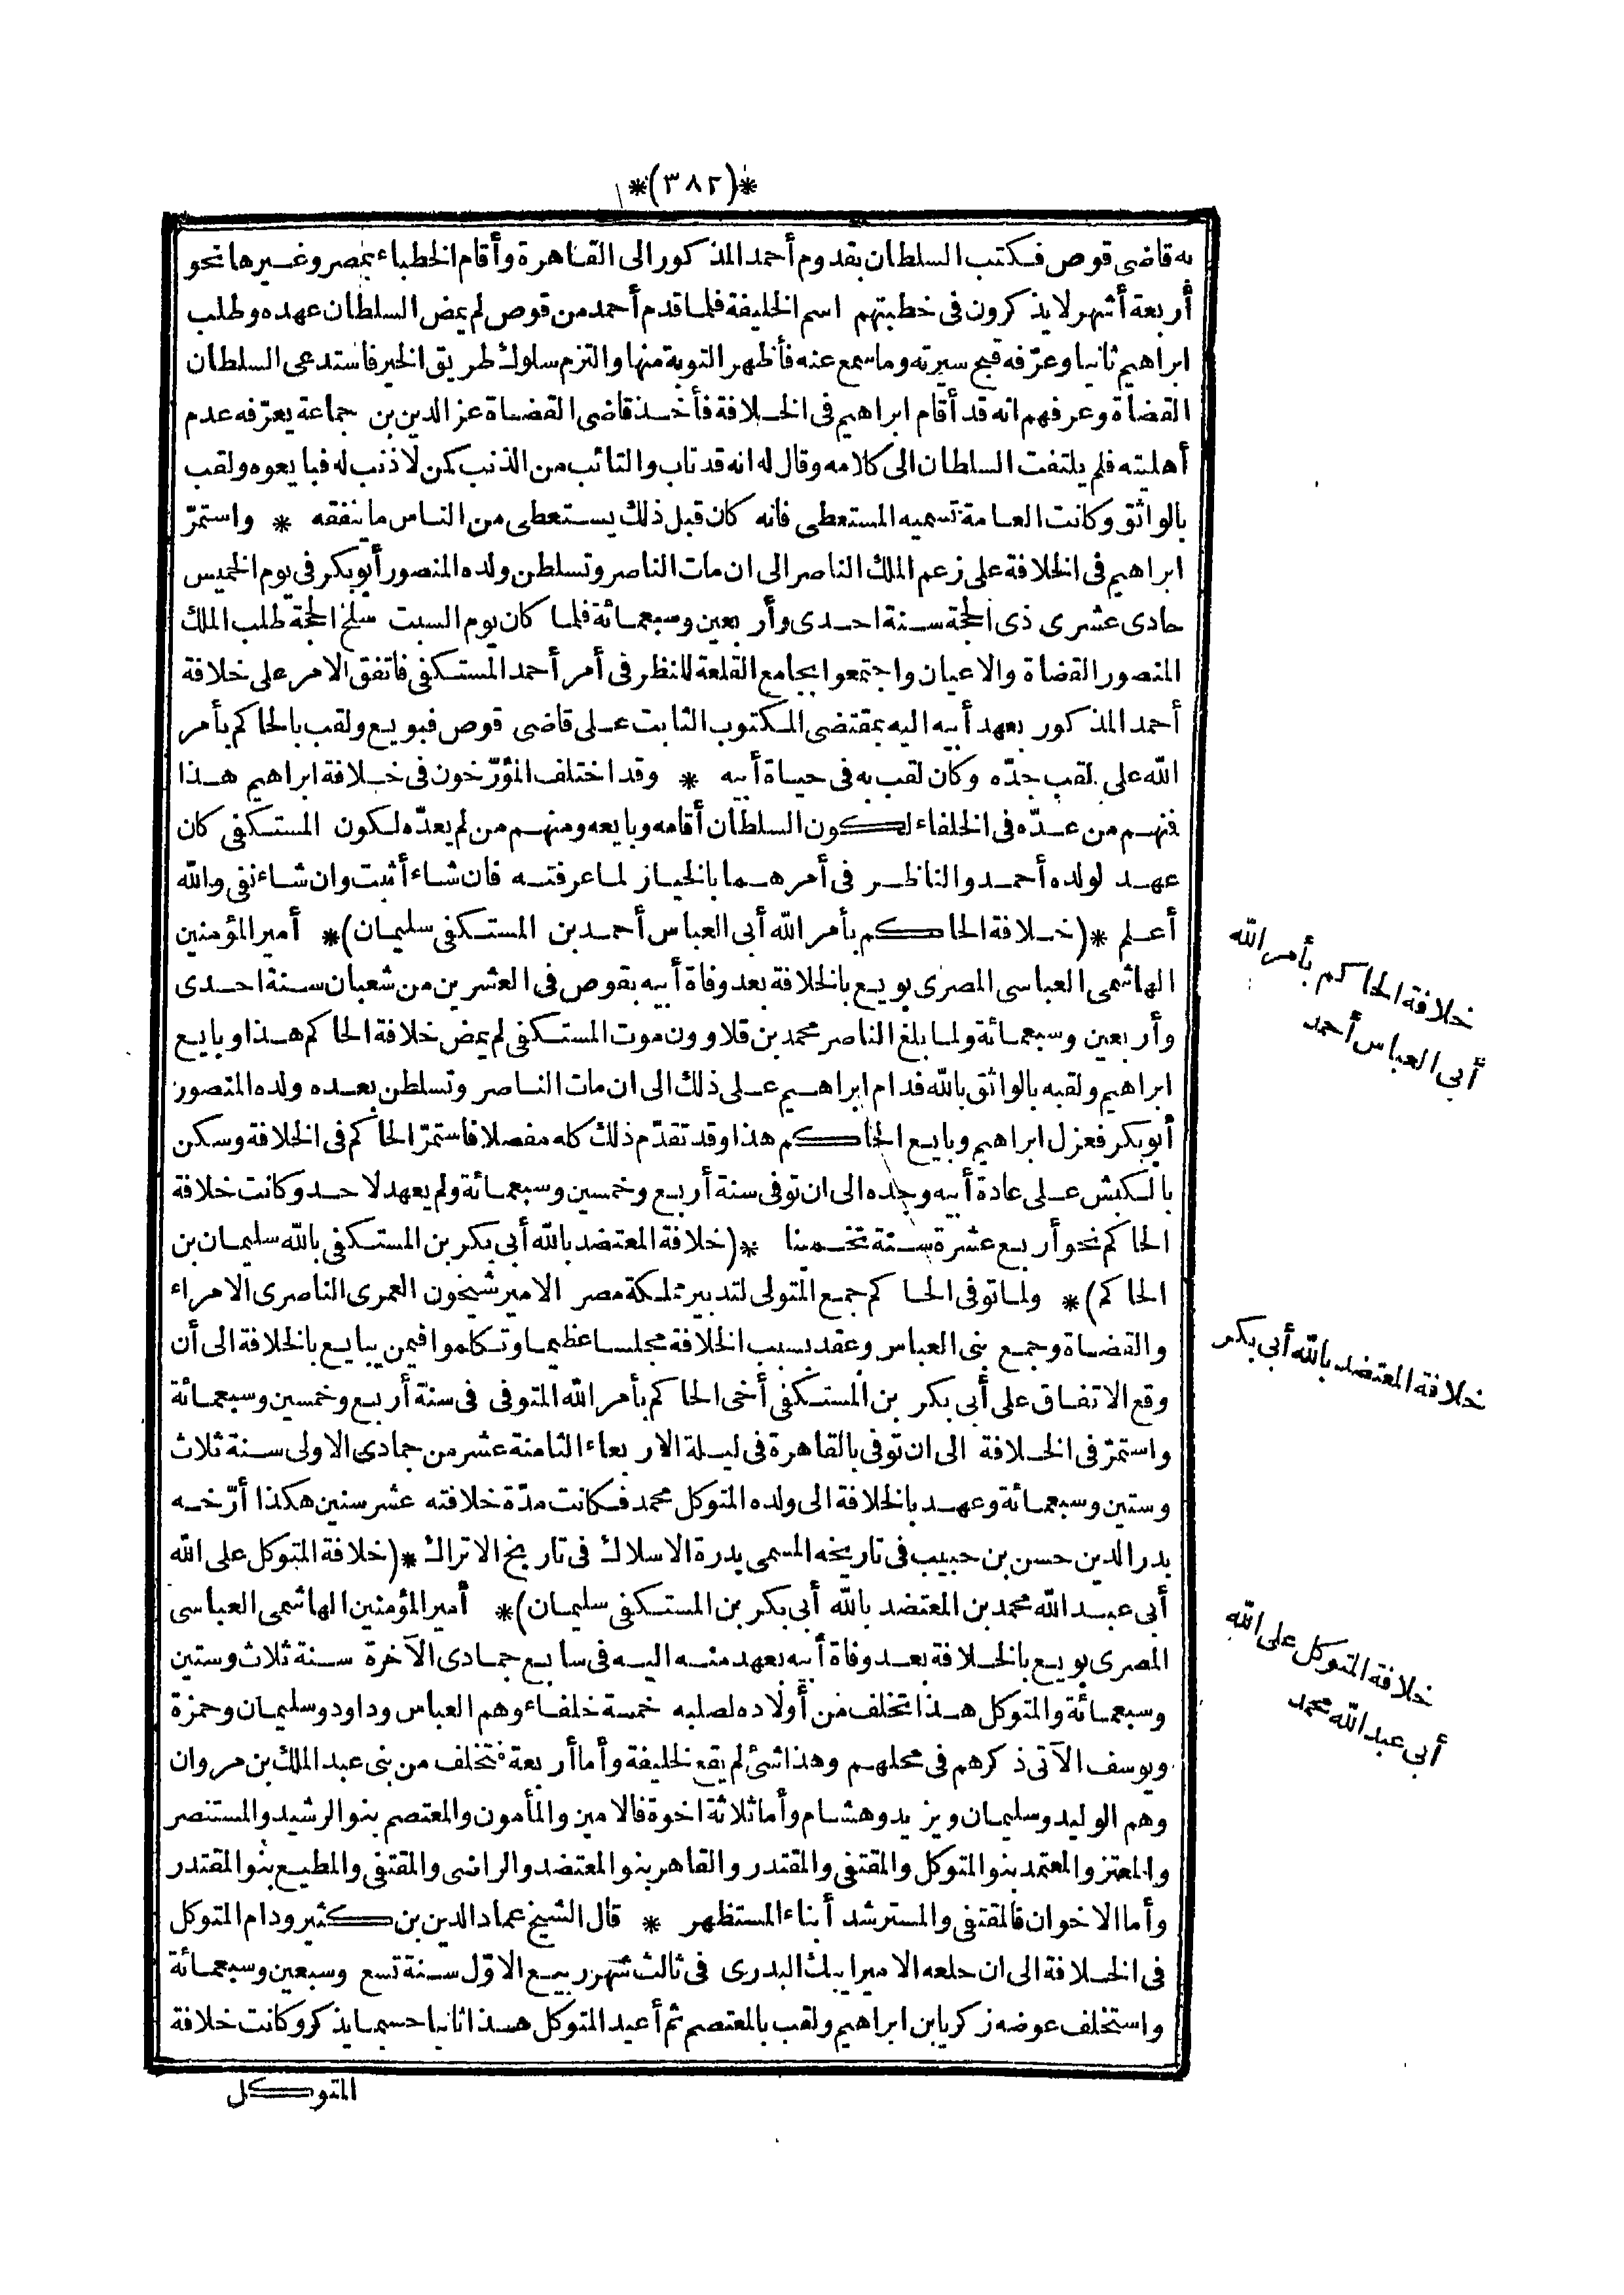 *(٣٨٢)*
به قاضى قوص فكتب السلطان بقدوم أحمد المذكور الى القاهرة وأقام الخطباء بمصر وغيرها نحو
أربعة أشهر لا يذكرون فى خطبتهم اسم الخليفة فلما قدم أحمد من قوص لم يمض السلطان عهده وطلب
ابراهيم ثانيا وعرّفه قبح سيرته وما سمع عنه فأظهر التوبة منها والتزم سلوك طريق الخير فاستدعى السلطان
القضاة وعرفهم انه قد أقام ابراهيم فى الخلافة فأخذ قاضى القضاة عز الدين بن جماعة يعرّفه عدم
أهليته فلم يلتفت السلطان الى كلامه وقال له انه قد تاب والتائب من الذنب كمن لا ذنب له فبايعوه ولقب
بالواثق وكانت العامة تسميه المستعطى فانه كان قبل ذلك يستعطى من الناس ما ينفقه * واستمرّ
ابراهيم فى الخلافة على زعم الملك الناصر الى ان مات الناصر وتسلطن ولده المنصور أبو بكر فى يوم الخميس
حادى عشرى ذى الحجة سنة احدى وأربعين وسبعمائة فلما كان يوم السبت سلخ الحجة طلب الملك
المنصور القضاة والاعيان واجتمعوا بجامع القلعة للنظر فى أمر أحمد المستكفى فاتفق الامر على خلافة
أحمد المذكور بعهد أبيه اليه بمقتضى المكتوب الثابت على قاضى قوص فبويع ولقب بالحاكم بأمر
الله على لقب جدّه وكان لقب به فى حياة أبيه * وقد اختلف المؤرّخون فى خلافة ابراهيم هذا
فمنهم من عدّه فى الخلفاء لكون السلطان أقامه وبايعه ومنهم من لم يعدّه لكون المستكفى كان
عهد لولده أحمد والناظر فى أمرهما بالخيار لما عرفته فان شاء أثبت وان شاء نفى والله
أعلم *(خلافة الحاكم بأمر الله أبى العباس أحمد بن المستكفى سليمان)* أمير المؤمنين
الهاشمى العباسى المصرى بويع بالخلافة بعد وفاة أبيه بقوص فى العشرين من شعبان سنة احدى
وأربعين وسبعمائة ولما بلغ الناصر محمد بن قلاوون موت المستكفى لم يمض خلافة الحاكم هذا وبايع
ابراهيم ولقبه بالواثق بالله فدام ابراهيم على ذلك الى ان مات الناصر وتسلطن بعده ولده المنصور
أبو بكر فعزل ابراهيم وبايع الحاكم هذا وقد تقدّم ذلك كله مفصلا فاستمرّ الحاكم فى الخلافة وسكن
بالكبش على عادة أبيه وجده الى ان توفى سنة أربع وخمسين وسبعمائة ولم يعهد لاحد وكانت خلافة
الحاكم نحو أربع عشرة سنة تخمينا *(خلافة المعتضد بالله أبى بكر بن المستكفى بالله سليمان بن
الحاكم)* ولما توفى الحاكم جمع المتولى لتدبير مملكة مصر الامير شيخون العمرى الناصرى الامراء
والقضاة وجمع بنى العباس وعقد بسبب الخلافة مجلسا عظيما وتكلموا فيمن يبايع بالخلافة الى أن
وقع الاتفاق على أبى بكر بن المستكفى أخى الحاكم بأمر الله المتوفى فى سنة أربع وخمسين وسبعمائة
واستمرّ فى الخلافة الى ان توفى بالقاهرة فى ليلة الاربعاء الثامنة عشر من جمادى الاولى سنة ثلاث
وستين وسبعمائة وعهد بالخلافة الى ولده المتوكل محمد فكانت مدّة خلافته عشر سنين هكذا أرّخه
بدر الدين حسن بن حبيب فى تاريخه المسمى بدرة الاسلاك فى تاريخ الاتراك *(خلافة المتوكل على الله
أبى عبد الله محمد بن المعتضد بالله أبى بكر بن المستكفى سليمان)* أمير المؤمنين الهاشمى العباسى
المصرى بويع بالخلافة بعد وفاة أبيه بعهد منه اليه فى سابع جمادى الآخرة سنة ثلاث وستين
وسبعمائة والمتوكل هذا تخلف من أولاده لصلبه خمسة خلفاء وهم العباس وداود وسليمان وحمزة
ويوسف الآتى ذكرهم فى محلهم وهذا شئ لم يقع لخليفة وأما أربعة فتخلف من بنى عبد الملك بن مروان
وهم الوليد وسليمان ويزيد وهشام وأما ثلاثة اخوة فالامين والمأمون والمعتصم بنو الرشيد والمستنصر
والمعتز والمعتمد بنو المتوكل والمقتفى والمقتدر والقاهر بنو المعتضد والراضى والمقتفى والمطيع بنو المقتدر
وأما الاخوان فالمقتفى والمسترشد أبناء المستظهر * قال الشيخ عماد الدين بن كثير ودام المتوكل
فى الخلافة الى ان خلعه الامير ايبك البدرى فى ثالث شهر ربيع الاوّل سنة تسع وسبعين وسبعمائة
واستخلف عوضه زكريا بن ابراهيم ولقب بالمعتصم ثم أعيد المتوكل هذا ثانيا حسبما يذكر وكانت خلافة
المتوكل
خلافة الحاكم بأمر الله
أبى العباس أحمد
خلافة المعتضد بالله أبى بكر
خلافة المتوكل على الله
أبى عبد الله محمد